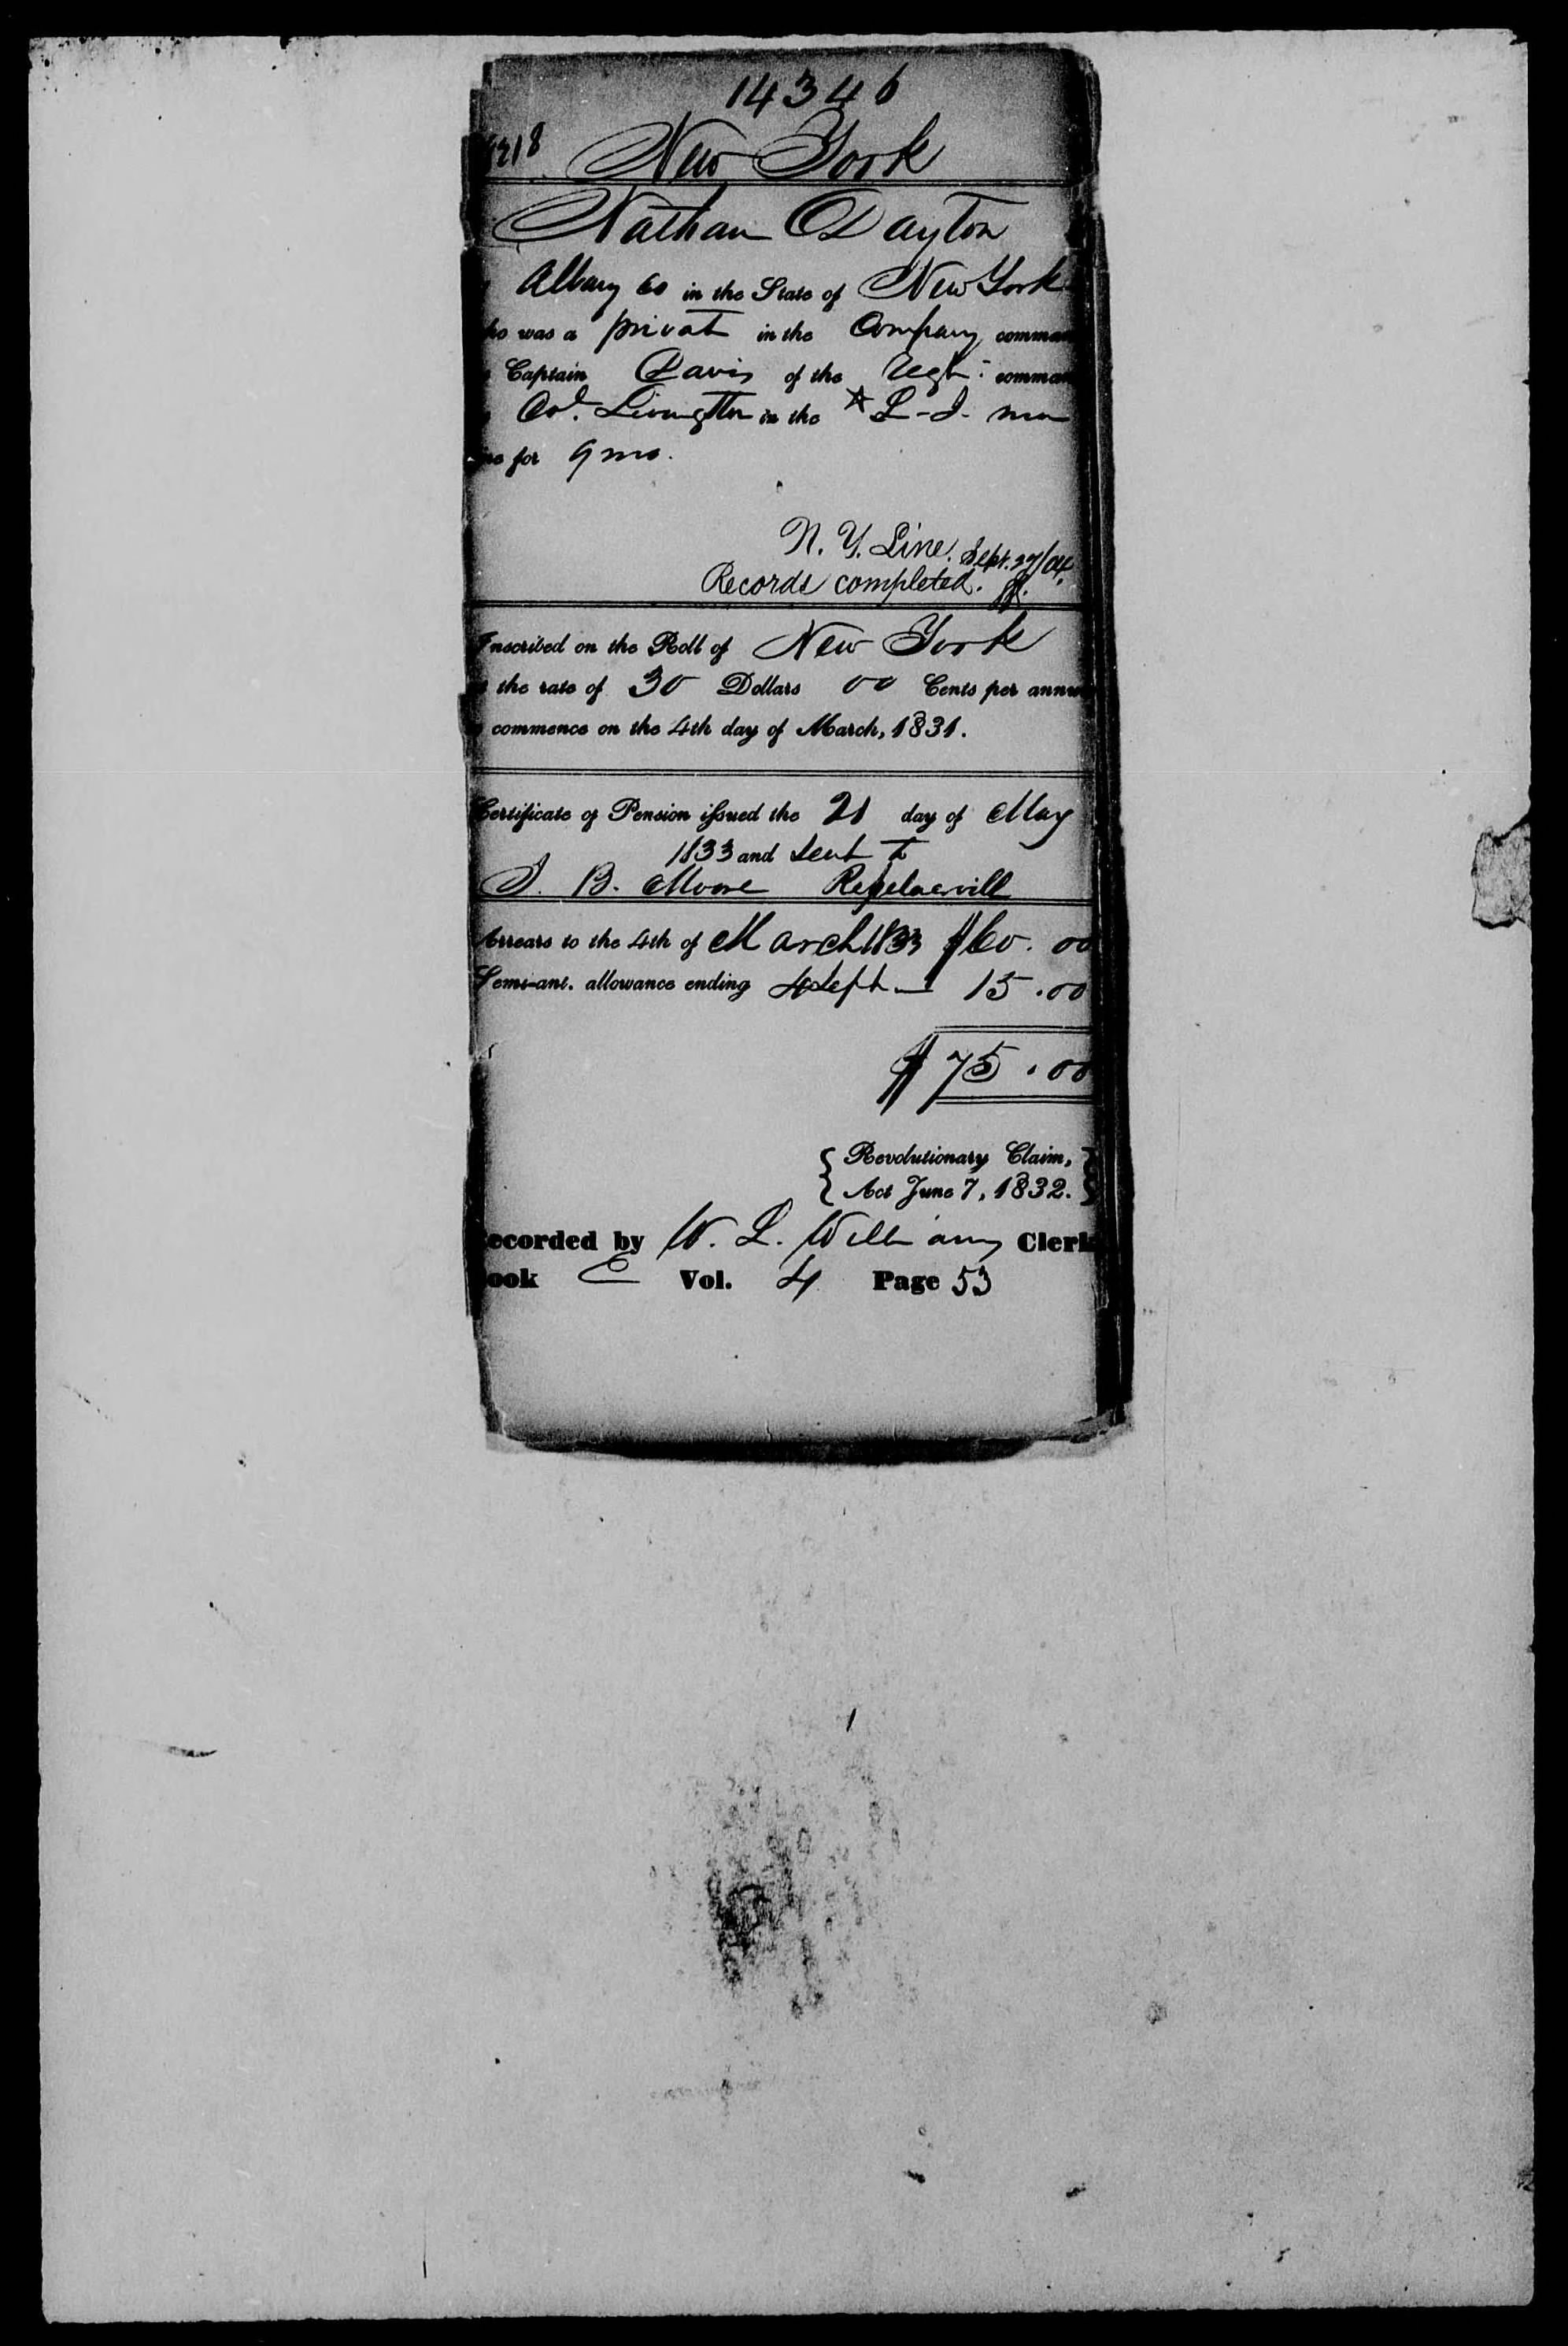 14346
New York
Nathan Dayton
Albany Co in the State of New York
who was a privat in the Company comman
Captain Davis of the Regt. comman
Col. Livingston in the
for 9 mo.
N. Y. Line. Sept. 27/04.
Records completed.
Inscribed on the Roll of New York
the rate of 30 Dollars 00 Cents per annu
commence on the 4th day of March, 1831.
Certificate of Pension issued the 21 day of May
1833 and sent to
J. B. Moore
Arrears to the 4th of March 1833 $60.00
Semi-anl. allowance ending 4 Sept 15.00
$75.00
{ Revolutionary Claim, }
{ Act June 7, 1832. }
ecorded by W. L. Williams Clerk
ook E Vol. 4 Page 53